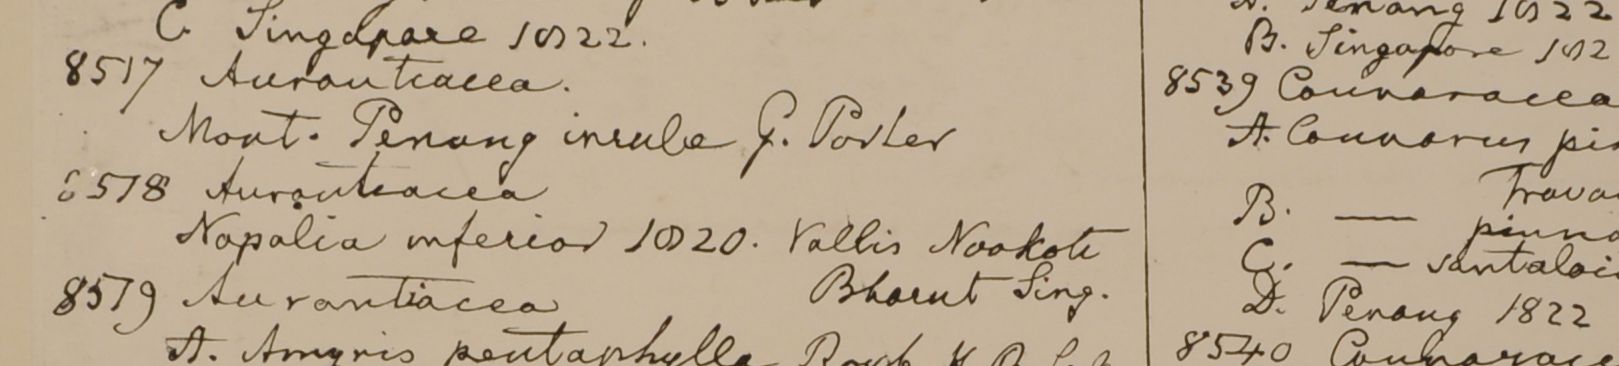 C. Singapore 1822.
8517 Aurantiacea.
Mont. Penang insula G. Porter
8518 Aurantiacea
Napalia inferior 1820. Vallis Nookote
Bharut Sing.
8519 Aurantiacea
A. Amyris pentaphylla Roxb H.B.
Penang 1822
B. Singapore 182
8539 Connaracea
A. Connarus pin
Trava
B. — pinna
C. — santaloi
D. Penang 1822
8540 Connarace